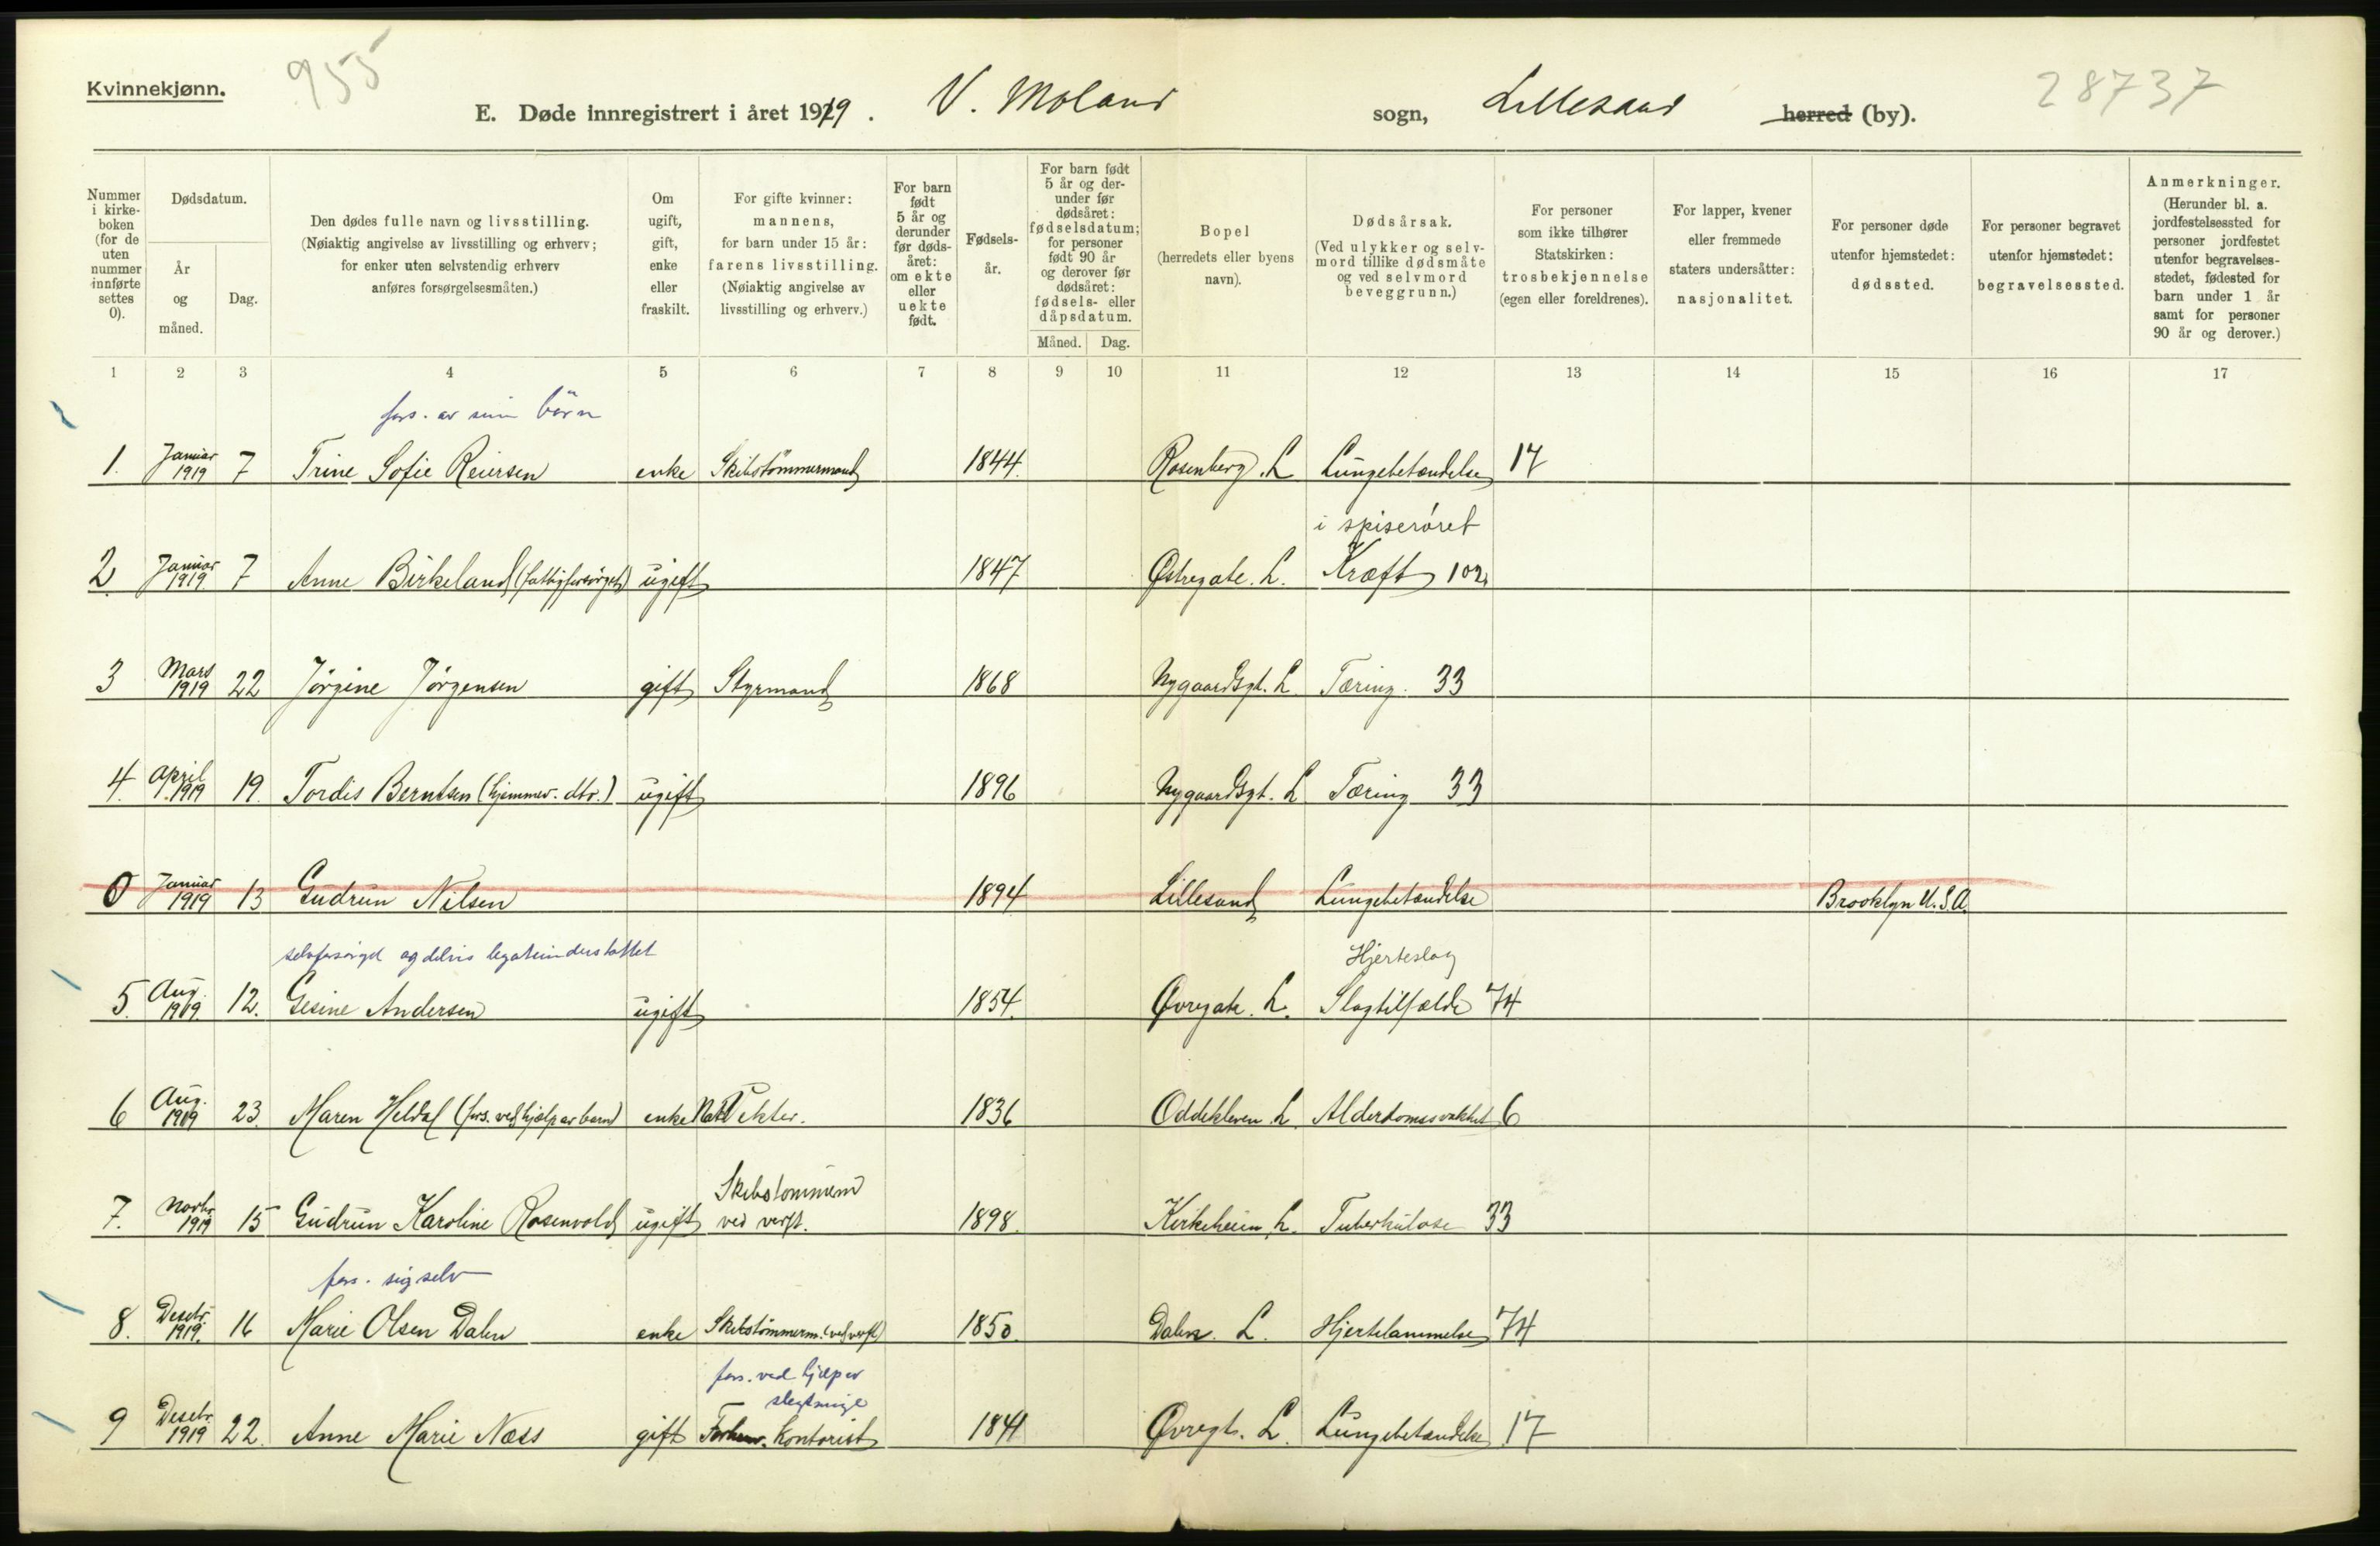 Kvinnekjønn.
955
E. Døde innregistrert i året 1919. V. Moland sogn, Lillesand herred (by).
28737
Nummer i kirkeboken (for de uten nummer innførte settes 0).
Dødsdatum.
År og måned.
Dag.
Den dødes fulle navn og livsstilling. (Nøiaktig angivelse av livsstilling og erhverv; for enker uten selvstendig erhverv anføres forsørgelsesmåten.)
Om ugift, gift, enke eller fraskilt.
For gifte kvinner: mannens, for barn under 15 år: farens livsstilling. (Nøiaktig angivelse av livsstilling og erhverv.)
For barn født 5 år og derunder før dødsåret: om ekte eller uekte født.
Fødselsår.
For barn født 5 år og derunder før dødsåret: fødselsdatum; for personer født 90 år og derover før dødsåret: fødsels- eller dåpsdatum.
Måned. Dag.
Bopel (herredets eller byens navn).
Dødsårsak. (Ved ulykker og selvmord tillike dødsmåte og ved selvmord beveggrunn.)
For personer som ikke tilhører Statskirken: trosbekjennelse (egen eller foreldrenes).
For lapper, kvener eller fremmede staters undersåtter: nasjonalitet.
For personer døde utenfor hjemstedet: dødssted.
For personer begravet utenfor hjemstedet: begravelsessted.
Anmerkninger. (Herunder bl. a. jordfestelsessted for personer jordfestet utenfor begravelsesstedet, fødested for barn under 1 år samt for personer 90 år og derover.)
1 2 3 4 5 6 7 8 9 10 11 12 13 14 15 16 17
fors. av sine börn
1. Januar 1919 7 Trine Sofie Reiersen enke Skibstömmermand 1844. Rosenberg. L Lungebetændelse 17
i spiseröret
2 Januar 1919. 7 Anne Birkeland (fattigforsörget) ugift 1847 Østregate. L. Kræft 102
3 Mars 1919 22 Jörgine Jörgensen gift Styrmand 1868 Nygaardsgt. L Tæring. 33
4. April 1919 19. Tordis Berntsen (hjemmev. dtr.) ugift 1896 Nygaardsgt. L Tæring 33
0 Januar 1919 13 Gudrun Nilsen 1894 Lillesand Lungebetændelse Brooklyn U.S.A.
selvforsörget og delvis legatunderstøttet
Hjerteslag
5. Aug. 1919. 12. Gesine Andersen ugift 1854. Øvregate. L. Slagtilfælde 74
6 Aug. 1919 23. Maren Heldal (fors. ved hjælp av barn) enke Natvekter. 1836 Oddekleven L. Alderdomssvakhet 6
Skibstömmerm
7. Novbr 1919 15 Gudrun Karoline Rosenvold ugift ved verft. 1898. Kirkeheien L. Tuberkulose 33
fors. sig selv
8. Desebr. 1919. 16 Marie Olsen Dalen enke Skibstömmerm. (ved verft) 1850. Dalen. L. Hjertelammelse 74
fors. ved hjelp av
slegtninge
9 Desebr. 1919 22. Anne Marie Næss gift Forhenv. Kontorist 1841 Øvregt. L. Lungebetændelse 17